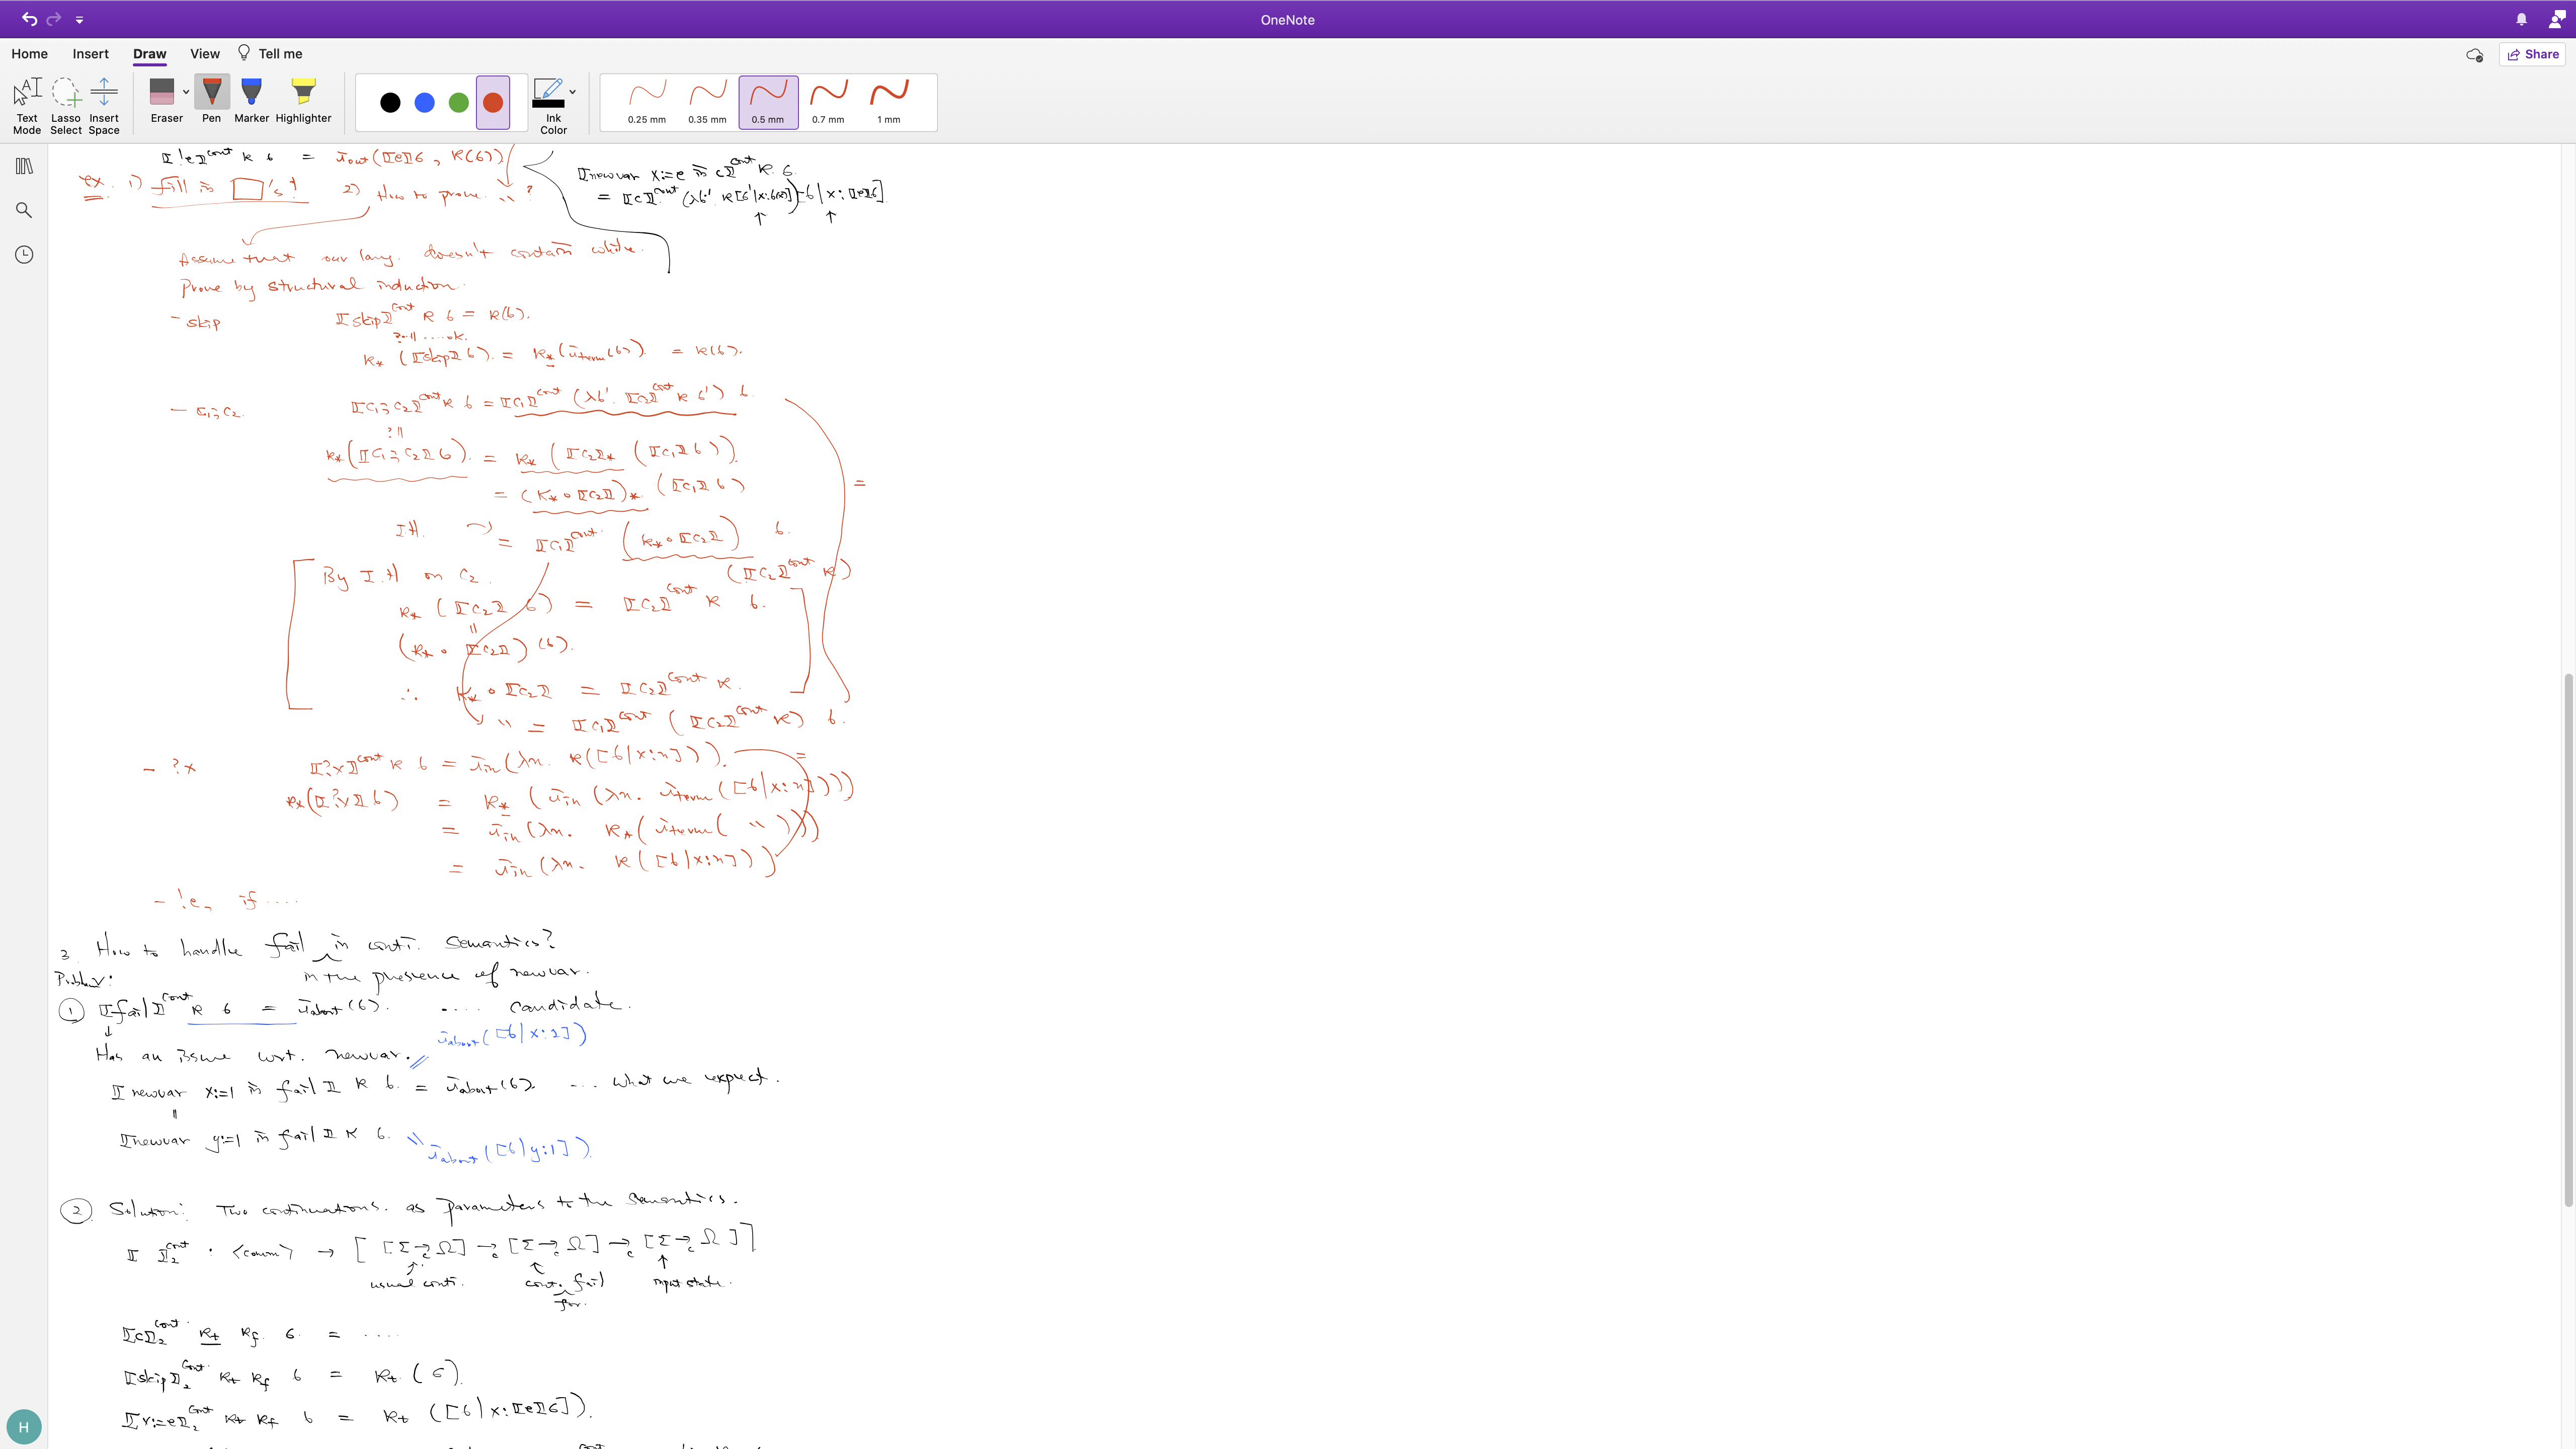 OneNote
Home Insert Draw View Tell me
Share
Text Mode
Lasso Select
Insert Space
Eraser
Pen
Marker
Highlighter
Ink Color
0.25 mm
0.35 mm
0.5 mm
0.7 mm
1 mm
⟦!e⟧^cont κ σ = ι_out(⟦e⟧σ, κ(σ))
⟦newvar x:=e in c⟧^cont κ σ
= ⟦c⟧^cont (λσ'. κ[σ'|x:σ(x)]) [σ|x:⟦e⟧σ]
ex. 1) fill in □'s! 2) How to prove. " ?
Assume that our lang. doesn't contain while.
Prove by structural induction.
- skip ⟦skip⟧^cont κ σ = κ(σ).
?·· ‖ ....ok.
κ* (⟦skip⟧σ). = κ*(ι_term(σ)). = κ(σ).
- c₁;c₂. ⟦c₁;c₂⟧^cont κ σ = ⟦c₁⟧^cont (λσ'. ⟦c₂⟧^cont κ σ') σ.
? ‖
κ*(⟦c₁;c₂⟧σ). = κ* (⟦c₂⟧* (⟦c₁⟧σ)).
= (κ* ∘ ⟦c₂⟧)* (⟦c₁⟧σ) =
IH. → = ⟦c₁⟧^cont. (κ* ∘ ⟦c₂⟧) σ.
By I.H on c₂. (⟦c₂⟧^cont κ)
κ* (⟦c₂⟧σ) = ⟦c₂⟧^cont κ σ.
‖
(κ* ∘ ⟦c₂⟧)(σ).
∴ κ* ∘ ⟦c₂⟧ = ⟦c₂⟧^cont κ.
" = ⟦c₁⟧^cont (⟦c₂⟧^cont κ) σ.
- ?x ⟦?x⟧^cont κ σ = ι_in(λn. κ([σ|x:n])). =
κ*(⟦?x⟧σ) = κ* (ι_in (λn. ι_term([σ|x:n])))
= ι_in (λn. κ*(ι_term( " )))
= ι_in (λn. κ([σ|x:n]))
- !e, if ....
3. How to handle fail in conti. semantics?
Problem: in the presence of newvar.
① ⟦fail⟧^cont κ σ = ι_abort(σ). .... candidate.
↓ ι_abort([σ|x:1])
Has an issue wrt. newvar. //
⟦newvar x:=1 in fail⟧ κ σ. = ι_abort(σ). ... what we expect.
‖
⟦newvar y:=1 in fail⟧ κ σ. \\ ι_abort([σ|y:1]).
② Solution: Two continuations. as parameters to the semantics.
⟦ ⟧₂^cont : ⟨comm⟩ → [ [Σ →c Ω] →c [Σ →c Ω] →c [Σ →c Ω] ]
↑ ↑ ↑
usual conti. cont. fail input state.
for.
⟦c⟧₂^cont κt κf σ = ....
⟦skip⟧₂^cont κt κf σ = κt (σ).
⟦v:=e⟧₂^cont κt κf σ = κt ([σ|x:⟦e⟧σ]).
H